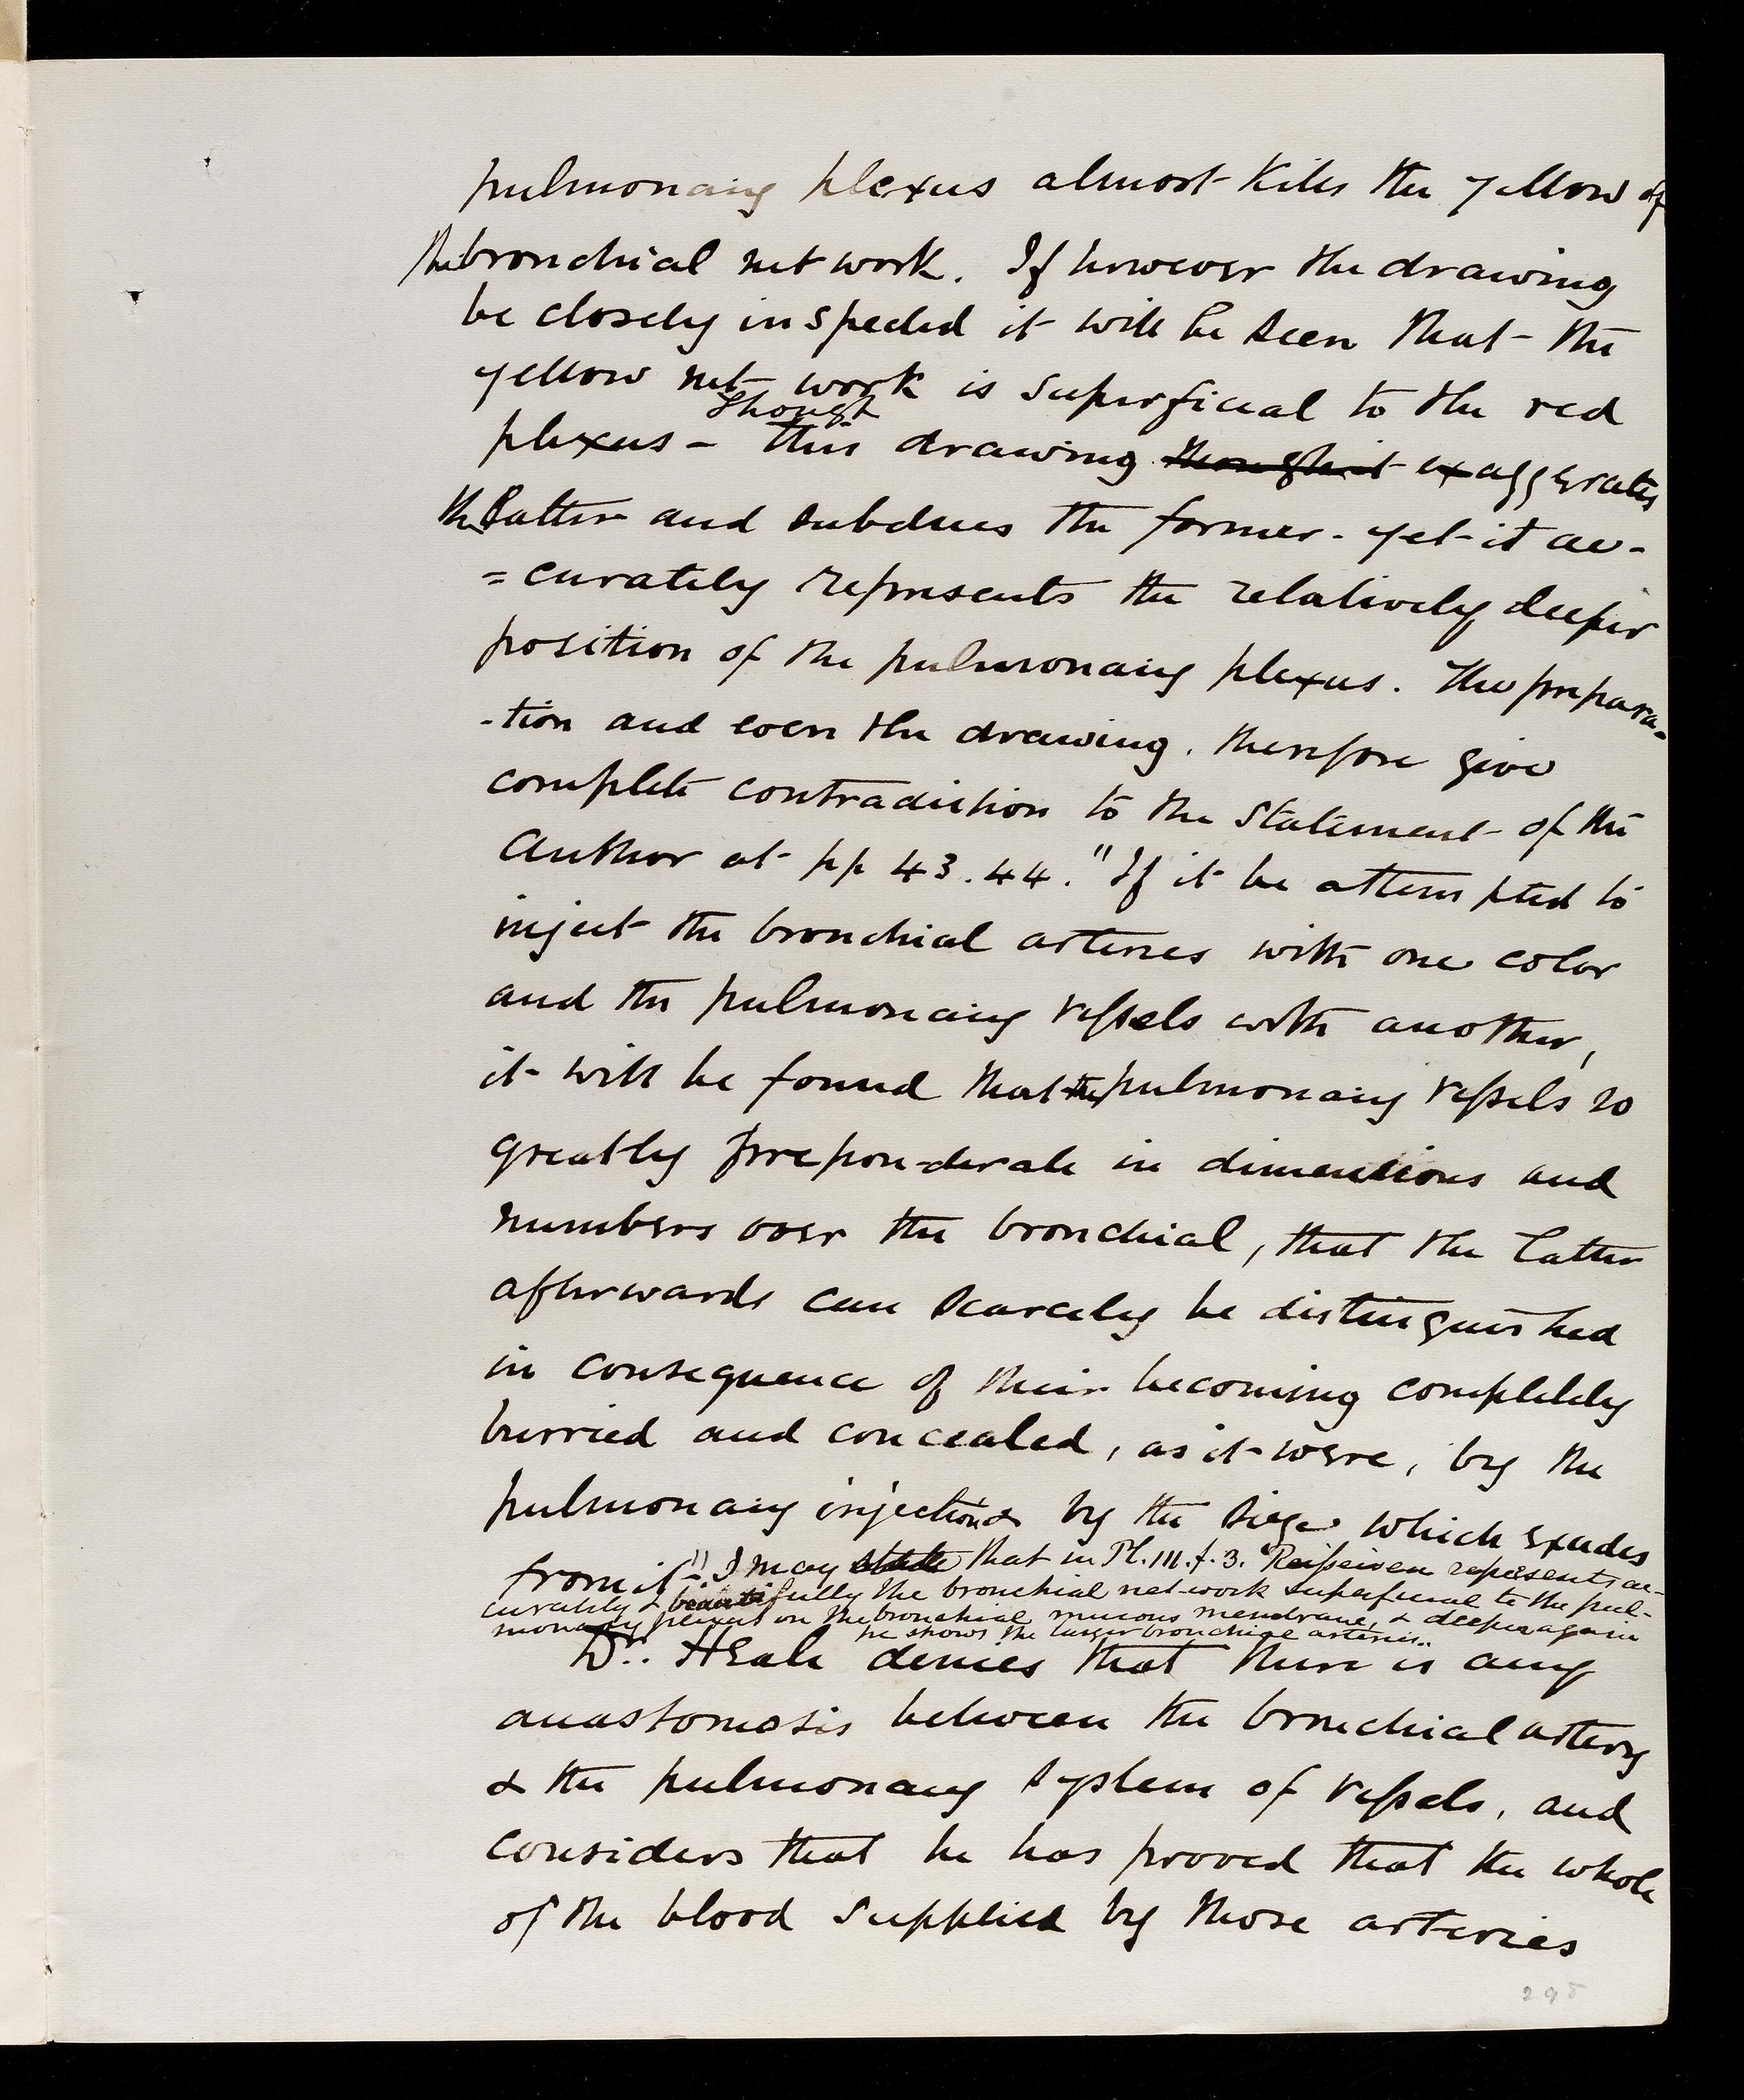 pulmonary plexus almost kills the yellow of
the bronchial net work. If however the drawing
be closely inspected it will be seen that the
yellow net work is superficial to the red
though
plexus - this drawing exaggerates
the latter and subdues the former - yet it ac-
=curately represents the relatively deeper
position of the pulmonary plexus. The prepara-
-tion and even the drawing, therefore give
complete contradiction to the statement of the
Author at pp 43.44. "If it be attempted to
inject the bronchial arteries with one color
and the pulmonary vessels with another,
it will be found that the pulmonary vessels so
greatly prepon-derate in dimensions and
numbers over the bronchial, that the latter
afterwards can scarcely be distinguished
in consequence of their becoming completely
burried and concealed, as it were, by the
pulmonary injection & by the size which exudes
from it." I may state that in Pl. III. f. 3. Reisseissen represents ac-
curately & beautifully the bronchial net-work superficial to the pul-
monary plexus on the bronchial mucous membrane, & deeper again
he shows the larger bronchial arteries..
Dr. Heale denies that there is any
anastomosis between the bronchial artery
& the pulmonary system of vessels, and
considers that he has proved that the whole
of the blood supplied by those arteries